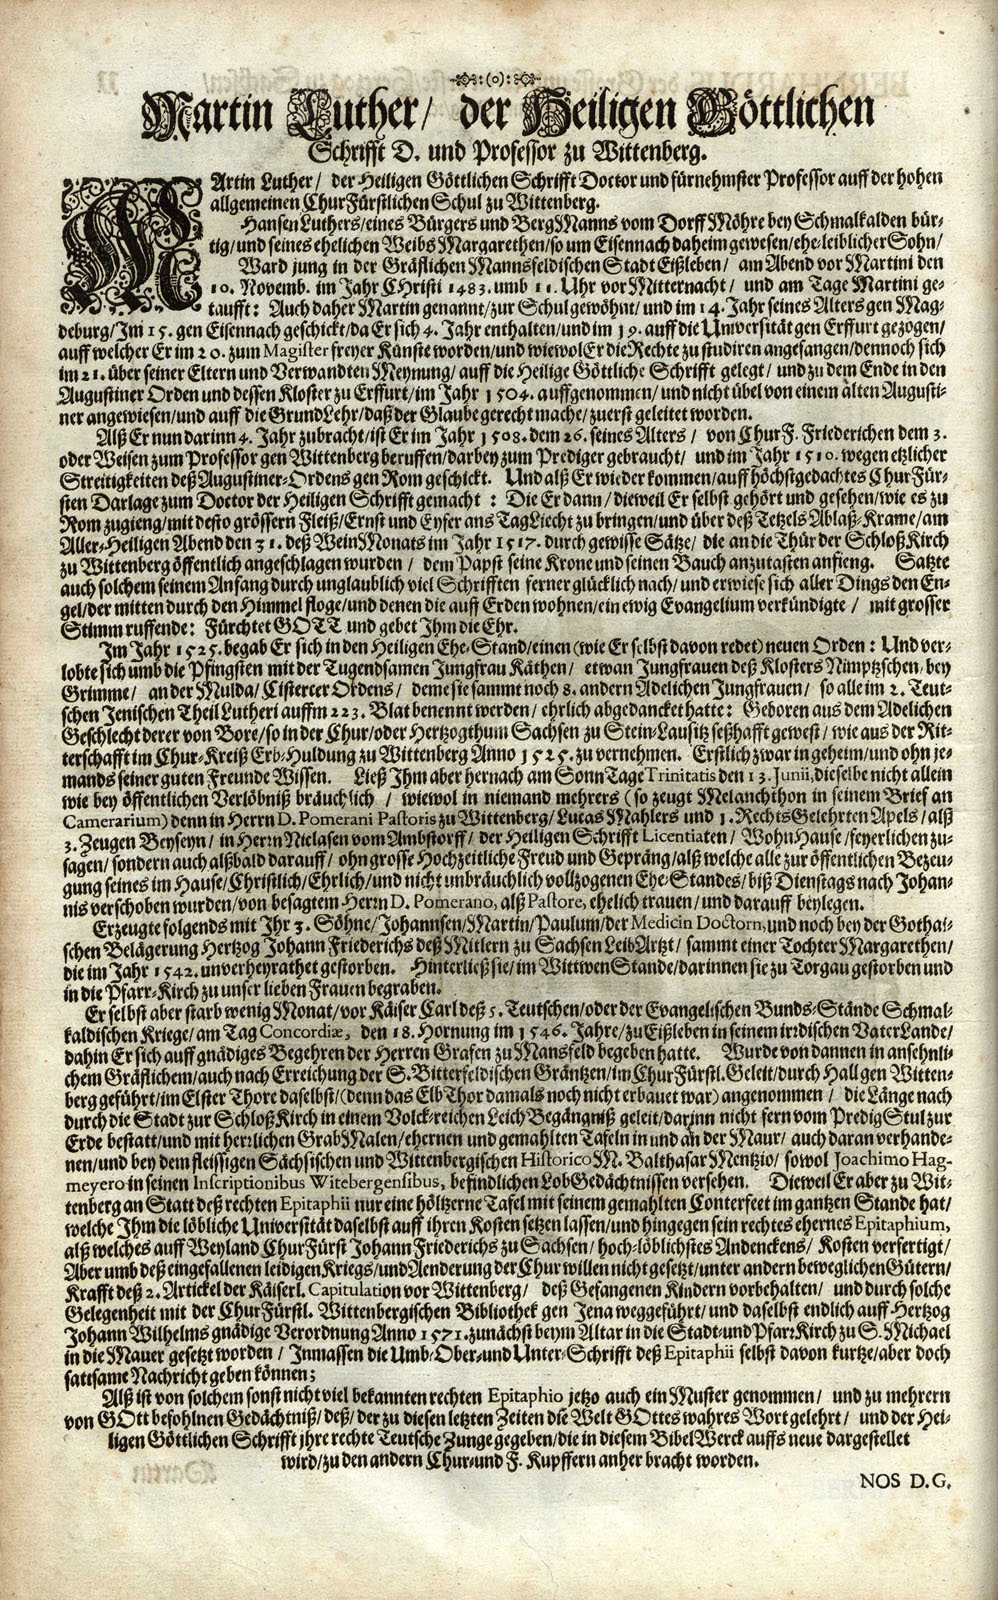 :(o):
Martin Luther/ der Heiligen Göttlichen
Schrifft D. und Professor zu Wittenberg.
MArtin Luther/ der Heiligen Göttlichen Schrifft Doctor und fürnehmster Professor auff der hohen
allgemeinen ChurFürstlichen Schul zu Wittenberg.
Hansen Luthers/eines Bürgers und BergManns vom Dorff Möhre bey Schmalkalden bür-
tig/und seines ehelichen Weibs Margarethen/so um Eisennach daheim gewesen/ehe-leiblicher Sohn/
Ward jung in der Gräflichen Mannsfeldischen Stadt Eißleben/ am Abend vor Martini den
10. Novemb. im Jahr CHristi 1483. umb 11. Uhr vor Mitternacht/ und am Tage Martini ge-
taufft: Auch daher Martin genannt/zur Schul gewöhnt/und im 14. Jahr seines Alters gen Mag-
deburg/Im 15. gen Eisennach geschickt/da Er sich 4. Jahr enthalten/und im 19. auff die Universität gen Erffurt gezogen/
auff welcher Er im 20. zum Magister freyer Künste worden/und wiewol Er die Rechte zu studiren angefangen/dennoch sich
im 21. über seiner Eltern und Verwandten Meynung/ auff die Heilige Göttliche Schrifft gelegt/ und zu dem Ende in den
Augustiner Orden und dessen Kloster zu Erffurt/im Jahr 1504. auffgenommen/ und nicht übel von einem alten Augusti-
ner angewiesen/und auff die GrundLehr/daß der Glaube gerecht mache/zuerst geleitet worden.
Alß Er nun darinn 4. Jahr zubracht/ist Er im Jahr 1508. dem 26. seines Alters/ von ChurF. Friederichen dem 3.
oder Weisen zum Professor gen Wittenberg beruffen/darbey zum Prediger gebraucht/ und im Jahr 1510. wegen etzlicher
Streitigkeiten deß Augustiner-Ordens gen Rom geschickt. Und alß Er wieder kommen/auff höchstgedachtes Chur-Für-
sten Darlage zum Doctor der Heiligen Schrifft gemacht: Die Er dann/dieweil Er selbst gehört und gesehen/wie es zu
Rom zugieng/mit desto grössern Fleiß/Ernst und Eyfer ans TagLiecht zu bringen/und über deß Tetzels Ablaß-Krame/am
Aller-Heiligen Abend den 31. deß WeinMonats im Jahr 1517. durch gewisse Sätze/ die an die Thür der Schloß Kirch
zu Wittenberg öffentlich angeschlagen wurden/ dem Papst seine Krone und seinen Bauch anzutasten anfieng. Satzte
auch solchem seinem Anfang durch unglaublich viel Schrifften ferner glücklich nach/und erwiese sich aller Dings den En-
gel/der mitten durch den Himmel floge/und denen die auff Erden wohnen/ein ewig Evangelium verkündigte/ mit grosser
Stimm ruffende: Fürchtet GOTT und gebet Ihm die Ehr.
Im Jahr 1525. begab Er sich in den Heiligen Ehe-Stand/einen (wie Er selbst davon redet) neuen Orden: Und ver-
lobte sich umb die Pfingsten mit der Tugendsamen Jungfrau Käthen/ etwan Jungfrauen deß Klosters Nimptzschen/bey
Grimme/ an der Mulda/Cistercer Ordens/ deme sie sammt noch 8. andern Adelichen Jungfrauen/ so alle im 2. Teut-
schen Jenischen Theil Lutheri auffm 223. Blat benennt werden/ ehrlich abgedancket hatte: Geboren aus dem Adelichen
Geschlecht derer von Bore/so in der Chur/oder Hertzogthum Sachsen zu Stein-Lausitz seßhafft gewest/ wie aus der Rit-
terschafft im Chur-Kreiß Erb-Huldung zu Wittenberg Anno 1525. zu vernehmen. Erstlich zwar in geheim/und ohn je-
mands seiner guten Freunde Wissen. Ließ Ihm aber hernach am SonnTage Trinitatis den 13. Junii, dieselbe nicht allein
wie bey öffentlichen Verlöbniß bräuchlich/ wiewol in niemand mehrers (so zeugt Melanchthon in seinem Brief an
Camerarium) denn in Herrn D. Pomerani Pastoris zu Wittenberg/Lucas Mahlers und 1. Rechts Gelehrten Apels/alß
3. Zeugen Beyseyn/ in Herrn Niclasen vom Ambstorff/ der Heiligen Schrifft Licentiaten/ WohnHause/feyerlichen zu-
sagen/sondern auch alßbald darauff/ ohn grosse Hochzeitliche Freud und Gepräng/alß welche alle zur öffentlichen Bezeu-
gung seines im Hause/Christlich/Ehrlich/und nicht unbräuchlich vollzogenen Ehe-Standes/biß Dienstags nach Johan-
nis verschoben wurden/von besagtem Herrn D. Pomerano, alß Pastore, ehelich trauen/und darauff beylegen.
Erzeugte folgends mit Ihr 3. Söhne/Johannsen/Martin/Paulum/der Medicin Doctorn, und noch bey der Gothai-
schen Belägerung Hertzog Johann Friederichs deß Mitlern zu Sachsen LeibArtzt/ sammt einer Tochter Margarethen/
die im Jahr 1542. unverheyrathet gestorben. Hinterließ sie/im WittwenStande/darinnen sie zu Torgau gestorben und
in die Pfarr-Kirch zu unser lieben Frauen begraben.
Er selbst aber starb wenig Monat/vor Käiser Carl deß 5. Teutschen/oder der Evangelischen Bunds-Stände Schmal-
kaldischen Kriege/am Tag Concordiæ, den 18. Hornung im 1546. Jahre/zu Eißleben in seinem irrdischen VaterLande/
dahin Er sich auff gnädiges Begehren der Herren Grafen zu Mansfeld begeben hatte. Wurde von dannen in ansehnli-
chem Gräflichem/auch nach Erreichung der S. Bitterfeldischen Gräntzen/im ChurFürstl. Geleit/durch Hall gen Witten-
berg geführt/im Elster Thore daselbst/(denn das ElbThor damals noch nicht erbauet war) angenommen/ die Länge nach
durch die Stadt zur Schloß Kirch in einem Volck-reichen Leich Begängniß geleit/darinn nicht fern vom PredigStul zur
Erde bestatt/und mit herrlichen GrabMalen/ehernen und gemahlten Tafeln in und an der Maur/ auch daran verhande-
nen/und bey dem fleissigen Sächsischen und Wittenbergischen Historico M. Balthasar Mentzio/sowol Joachimo Hag-
meyero in seinen Inscriptionibus Witebergensibus, befindlichen LobGedächtnissen versehen. Dieweil Er aber zu Wit-
tenberg an Statt deß rechten Epitaphii nur eine höltzerne Tafel mit seinem gemahlten Conterfeet im gantzen Stande hat/
welche Ihm die löbliche Universität daselbst auff ihren Kosten setzen lassen/und hingegen sein rechtes ehernes Epitaphium,
alß welches auff Weyland ChurFürst Johann Friederichs zu Sachsen/ hoch-löblichstes Andenckens/ Kosten verfertigt/
Aber umb deß eingefallenen leidigen Kriegs/und Aenderung der Chur willen nicht gesetzt/unter andern beweglichen Gütern/
Krafft deß 2. Artickel der Käiserl. Capitulation vor Wittenberg/ deß Gefangenen Kindern vorbehalten/ und durch solche
Gelegenheit mit der ChurFürstl. Wittenbergischen Bibliothek gen Jena weggeführt/und daselbst endlich auff Hertzog
Johann Wilhelms gnädige Verordnung Anno 1571. zunächst beym Altar in die Stadt-und PfarrKirch zu S. Michael
in die Mauer gesetzt worden/ Inmassen die Umb-Ober-und Unter-Schrifft deß Epitaphii selbst davon kurtze/aber doch
sattsame Nachricht geben können;
Alß ist von solchem sonst nicht viel bekannten rechten Epitaphio jetzo auch ein Muster genommen/ und zu mehrern
von GOtt befohlnen Gedächtniß/deß/der zu diesen letzten Zeiten die Welt GOttes wahres Wort gelehrt/ und der Hei-
ligen Göttlichen Schrifft jhre rechte Teutsche Zunge gegeben/die in diesem Bibel Werck auffs neue dargestellet
wird/zu den andern Chur-und F. Kupffern anher bracht worden.
NOS D.G.